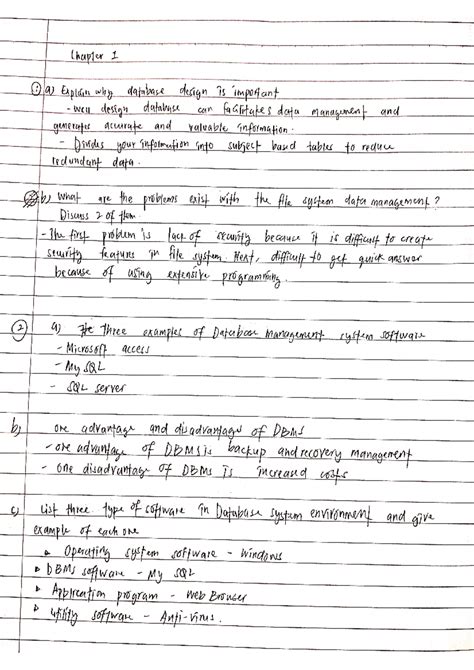 Chapter 1
① a) Explain why database design is important
- well design database can facilitates data management and
generates accurate and valuable information.
- Divides your information into subject based tables to reduce
redundant data.
b) What are the problems exist with the file system data management?
Discuss 2 of them
- The first problem is lack of security because it is difficult to create
security features in file system. Next, difficult to get quick answer
because of using extensive programming.
② a) three examples of Database management system software
- Microsoft access
- My SQL
- SQL server
b) one advantage and disadvantage of DBMS
- one advantage of DBMS is backup and recovery management
- one disadvantage of DBMS is increased costs
c) List three type of software in Database system environment and give
example of each one
▸ Operating system software - windows
▸ DBMS software - My SQL
▸ Application program - Web Browser
▸ utility software - Anti-virus.